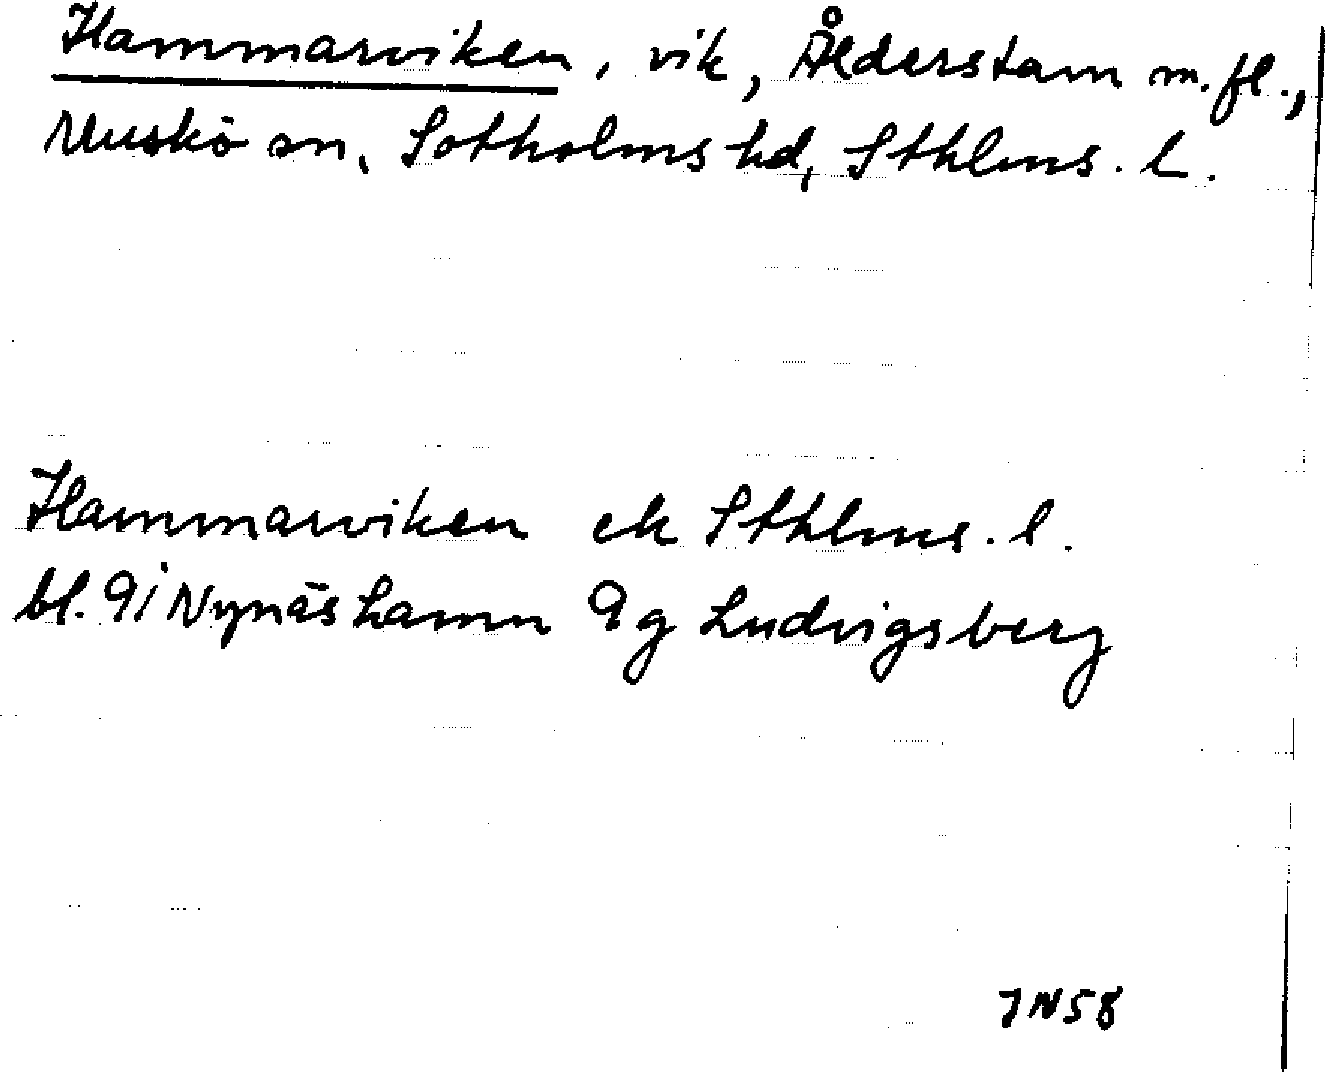 Hammarviken, vik, Ålderstam m.fl.,
Muskö sn, Sotholms hd, Sthlms. l.
Hammarviken ek Sthlms. l.
bl. 9i Nynäshamn 9g Ludvigsberg
JN58